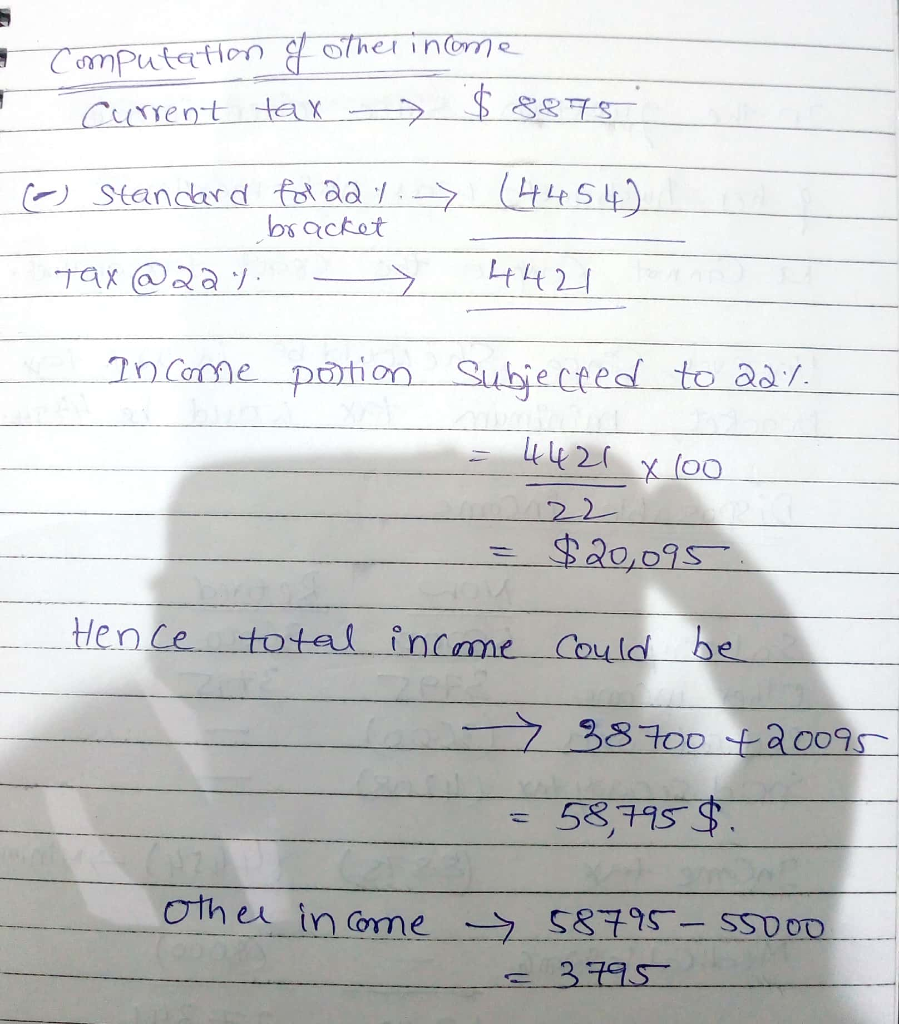 Computation of other income
Current tax → $ 8875
(-) Standard for 22 %. → (4454)
bracket
Tax @ 22 %. → 4421
Income portion Subjected to 22%.
= 4421 x 100
22
= $20,095.
Hence total income could be
→ 38700 + 20095
= 58,795 $.
Other income → 58795 - 55000
= 3795